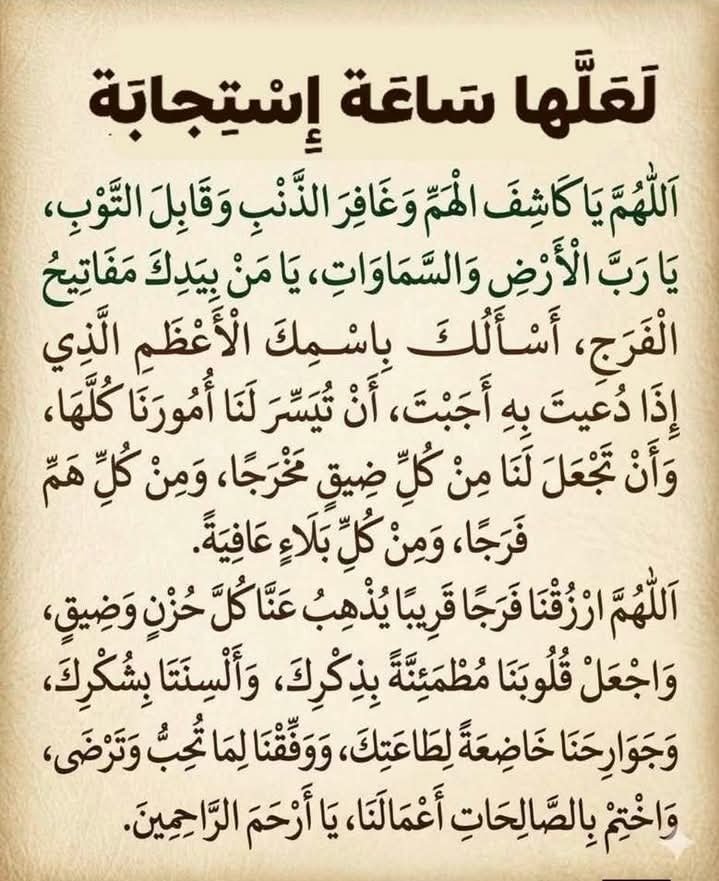 لَعَلَّها سَاعَة إِسْتِجابَة
اَللّٰهُمَّ يَا كَاشِفَ الْهَمِّ وَغَافِرَ الذَّنْبِ وَقَابِلَ التَّوْبِ،
يَا رَبَّ الْأَرْضِ وَالسَّمَاوَاتِ، يَا مَنْ بِيَدِكَ مَفَاتِيحُ
الْفَرَجِ، أَسْـأَلُكَ بِاسْـمِكَ الْأَعْظَمِ الَّذِي
إِذَا دُعيتَ بِهِ أَجَبْتَ، أَنْ تُيَسِّرَ لَنَا أُمُورَنَا كُلَّهَا،
وَأَنْ تَجْعَلَ لَنَا مِنْ كُلِّ ضِيقٍ مَخْرَجًا، وَمِنْ كُلِّ هَمٍّ
فَرَجًا، وَمِنْ كُلِّ بَلَاءٍ عَافِيَةً.
اَللّٰهُمَّ ارْزُقْنَا فَرَجًا قَرِيبًا يُذْهِبُ عَنَّا كُلَّ حُزْنٍ وَضِيقٍ،
وَاجْعَلْ قُلُوبَنَا مُطْمَئِنَّةً بِذِكْرِكَ، وَأَلْسِنَتَا بِشُكْرِكَ،
وَجَوَارِحَنَا خَاضِعَةً لِطَاعَتِكَ، وَوَفِّقْنَا لِمَا تُحِبُّ وَتَرْضَى،
وَاخْتِمْ بِالصَّالِحَاتِ أَعْمَالَنَا، يَا أَرْحَمَ الرَّاحِمِينَ.